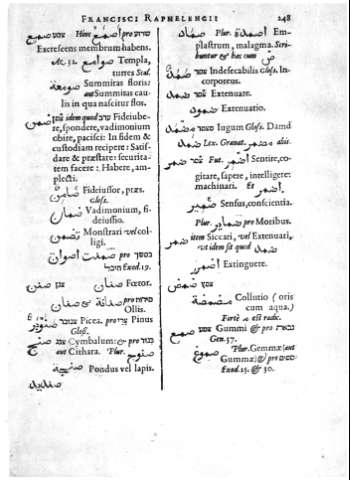 FRANCISCI RAPHELENGII 248
Hinc صمع
Excrescens membrum habens.
صوامع Templa,
turres Scal.
صومعة Summitas floris:
aut Summitas cau-
lis in qua nascitur flos.
ضمن idem quod Fideiube-
re, spondere, vadimonium
obire, pacisci: In fidem &
custodiam recipere: Satis-
dare & præstare: securita-
tem facere: Habere, am-
plecti.
ضامن Fideiussor, præs.
Gloss.
ضمان Vadimonium, fi-
deiussio.
تضمن Monstrari vel col-
ligi.
pro
Exod. 19.
صنان Fœtor.
صنن
pro
Ollis.
صنوبر Picea. pro Pinus
Gloss.
صنج Cymbalum: & pro
aut Cithara. Plur. صنوج
صنجة Pondus vel lapis.
صنديد
ضماد Plur. اضمدة Em-
plastrum, malagma. Scri-
buntur & hæc cum ض
ضمد Indefecabilis Gloss. In-
corporeus.
ضمد Extenuare.
ضمود Extenuatio.
Iugum Gloss. Damd
Lex. Granat. alii.
ضمر Fut. Sentire, co-
gitare, sapere, intelligere:
machinari. Et اضمر
ضمير Sensus, conscientia.
Plur. ضماير pro Moribus.
ضمر item Siccari, vel Extenuari,
ut idem sit quod ضمد
Extinguere.
مضمضة Collutio (oris
cum aqua,)
Forte est radic.
صمغ Gummi & pro
Gen. 37.
صموغ Plur. Gemmæ (aut
Gummæ) & pro
Exod. 25. & 30.